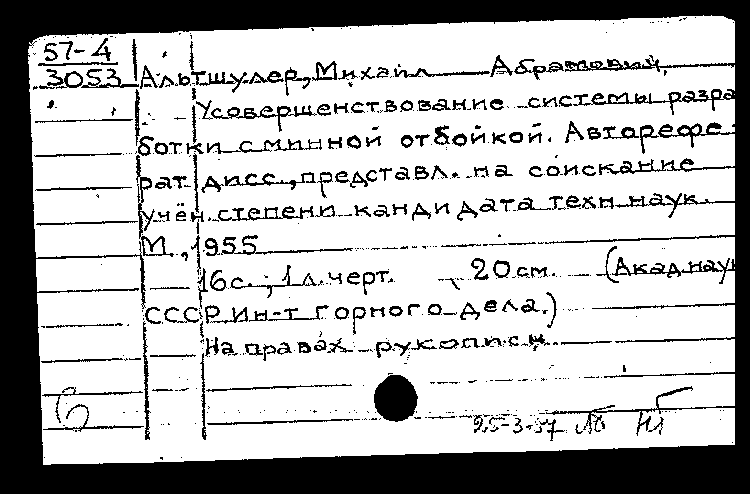 57-4
3053 Альтшулер, Михаил Абрамович.
Усовершенствование системы разра
ботки с минной отбойкой. Авторефе-
рат дисс., представл. на соискание
учён. степени кандидата техн. наук.
М., 1955
16 с.; 1 л. черт. 20 см. (Акад. наук
СССР. Ин-т горного дела.)
На правах рукописи.
6
25-3-57